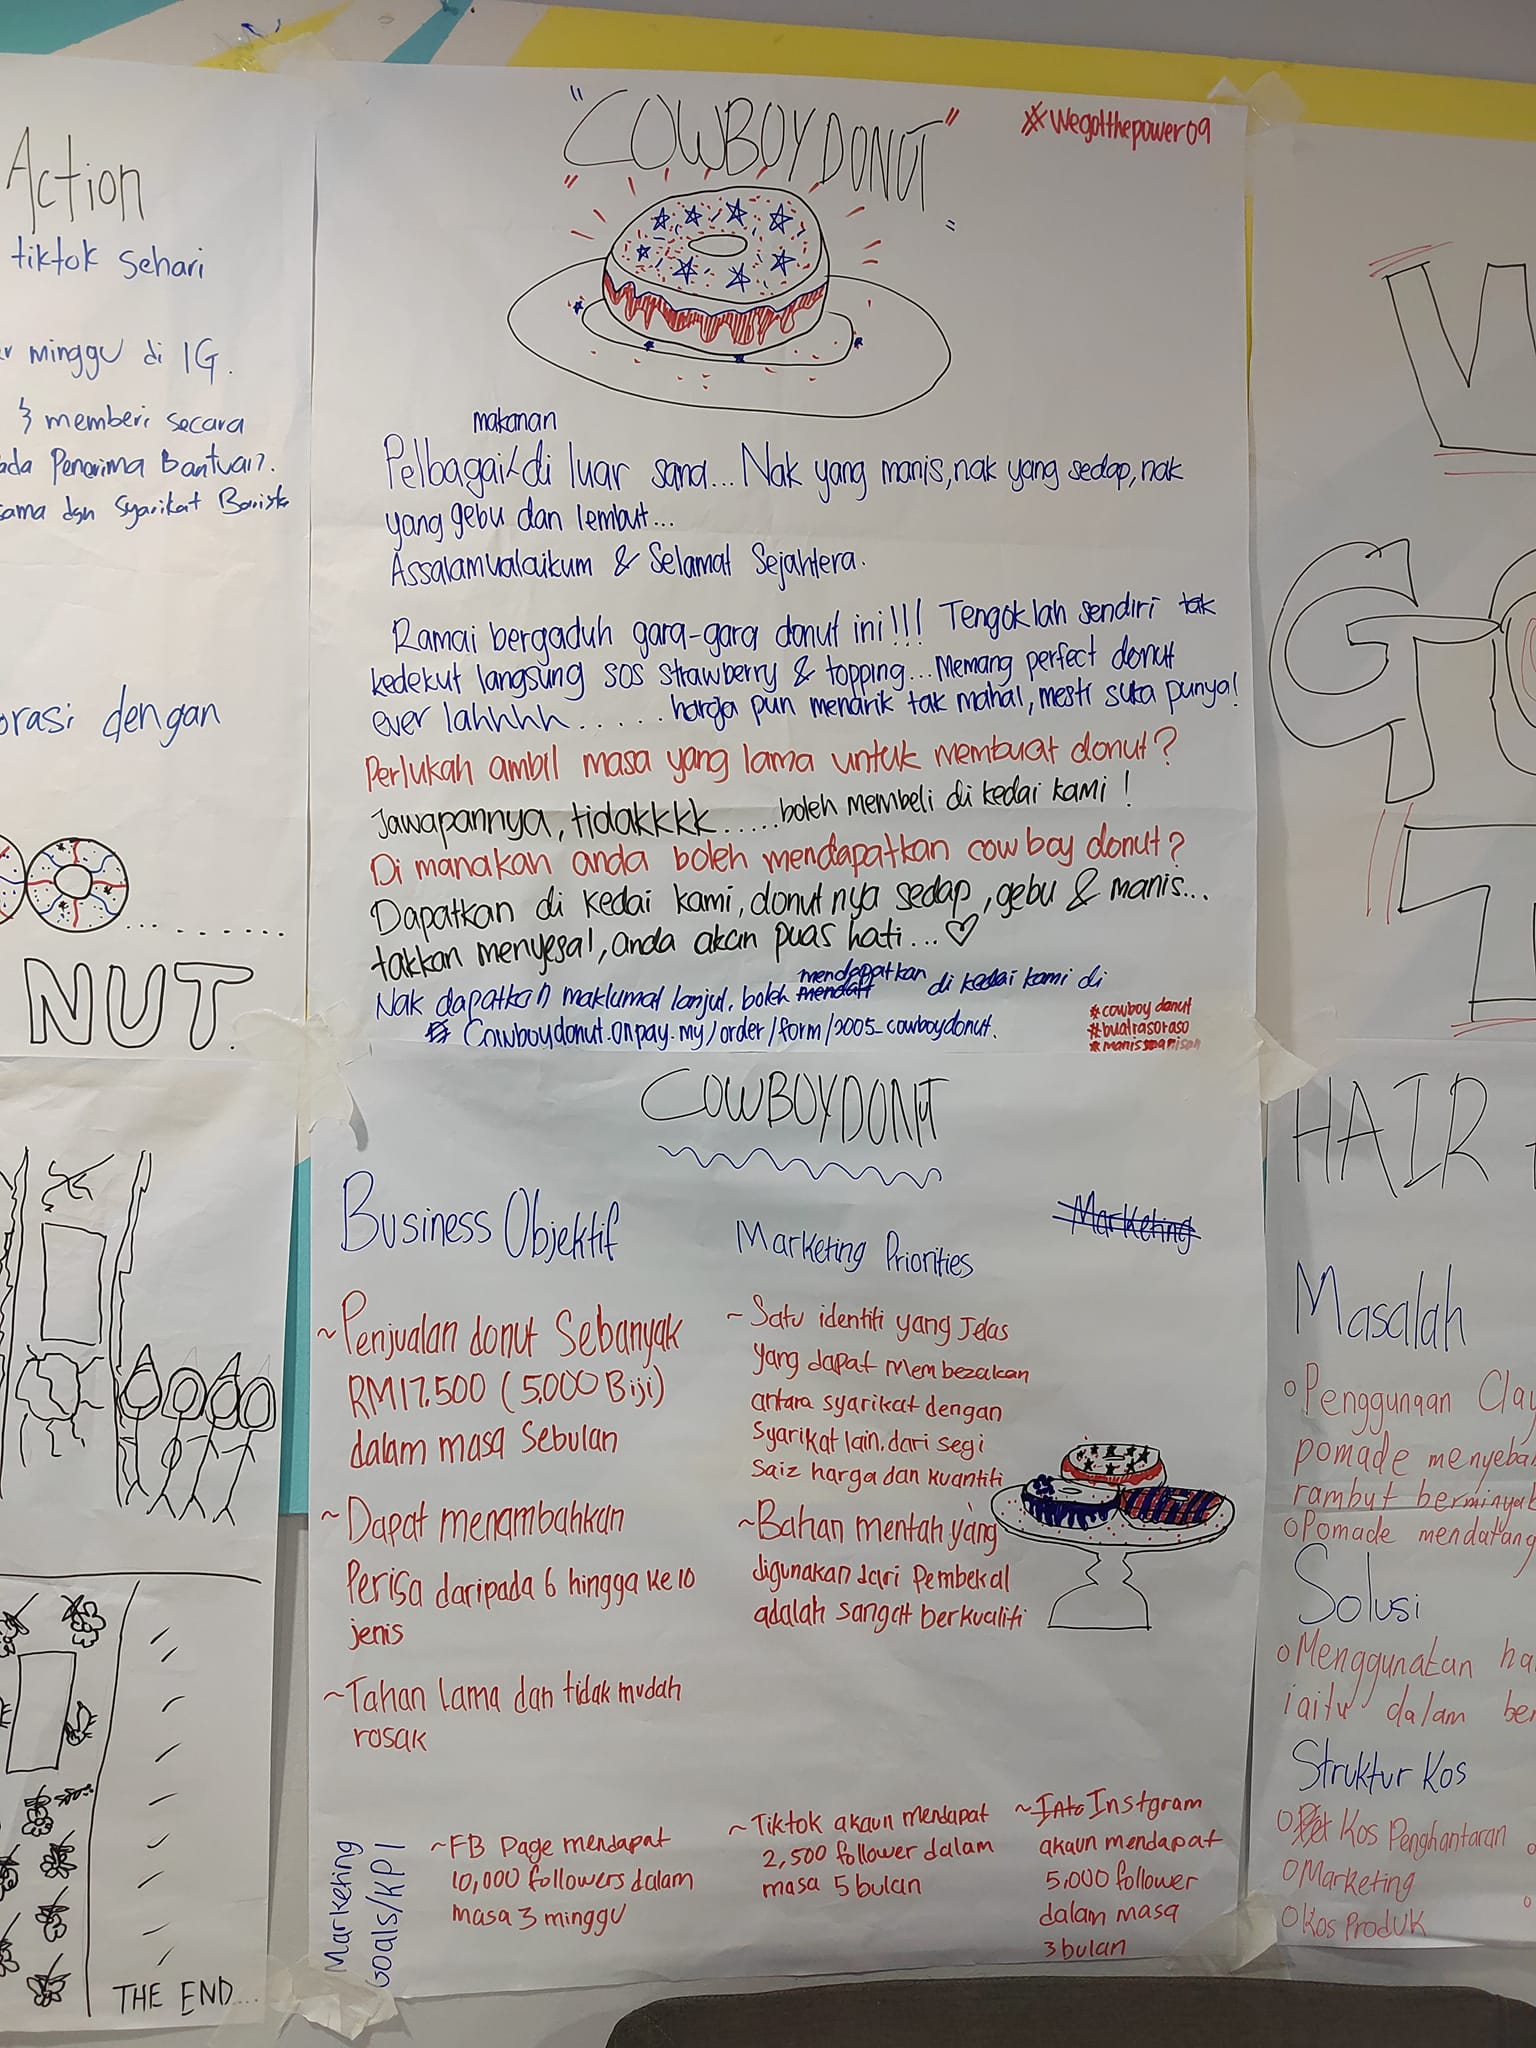 Action
tiktok sehari
minggu di IG.
& memberi secara
Penerima Bantuan.
sama dgn Syarikat Barista
orasi dengan
NUT.
THE END....
"COWBOY DONUT"
#Wegotthepower09
makanan
Pelbagai di luar sana... Nak yang manis, nak yang sedap, nak
yang gebu dan lembut...
Assalamualaikum & Selamat Sejahtera.
Ramai bergaduh gara-gara donut ini!!! Tengoklah sendiri tak
kedekut langsung sos strawberry & topping... Memang perfect donut
ever lahhhh..... harga pun menarik tak mahal, mesti suka punya!
Perlukah ambil masa yang lama untuk membuat donut?
Jawapannya, tidakkkk..... boleh membeli di kedai kami!
Di manakan anda boleh mendapatkan cowboy donut?
Dapatkan di kedai kami, donut nya sedap, gebu & manis...
takkan menyesal, anda akan puas hati...
Nak dapatkan maklumat lanjut, boleh mendapatkan di kedai kami di
Cowboydonut.onpay.my/order/form/2005-cowboydonut.
#cowboy donut
#buatrasoraso
COWBOY DONUT
Business Objektif
~Penjualan donut Sebanyak
RM17.500 (5,000 Biji)
dalam masa Sebulan
~Dapat menambahkan
Perisa daripada 6 hingga ke 10
jenis
~Tahan Lama dan tidak mudah
rosak
Marketing Priorities
Marketing
~Satu identiti yang Jelas
yang dapat membezakan
antara syarikat dengan
Syarikat lain, dari segi
Saiz harga dan kuantiti
~Bahan mentah yang
digunakan dari Pembekal
adalah sangat berkualiti
Marketing
Goals/KPI
~FB Page mendapat
10,000 followers dalam
masa 3 minggu
~Tiktok akaun mendapat
2,500 follower dalam
masa 5 bulan
~Instgram
akaun mendapat
5,000 follower
dalam masa
3 bulan
HAIR
Masalah
○Penggunaan Clay
pomade menyebab
rambut berminyak
○Pomade mendatang
Solusi
○Menggunatan ha
iaitu dalam ber
Struktur Kos
○Kos Penghantaran
○Marketing
○Kos Produk